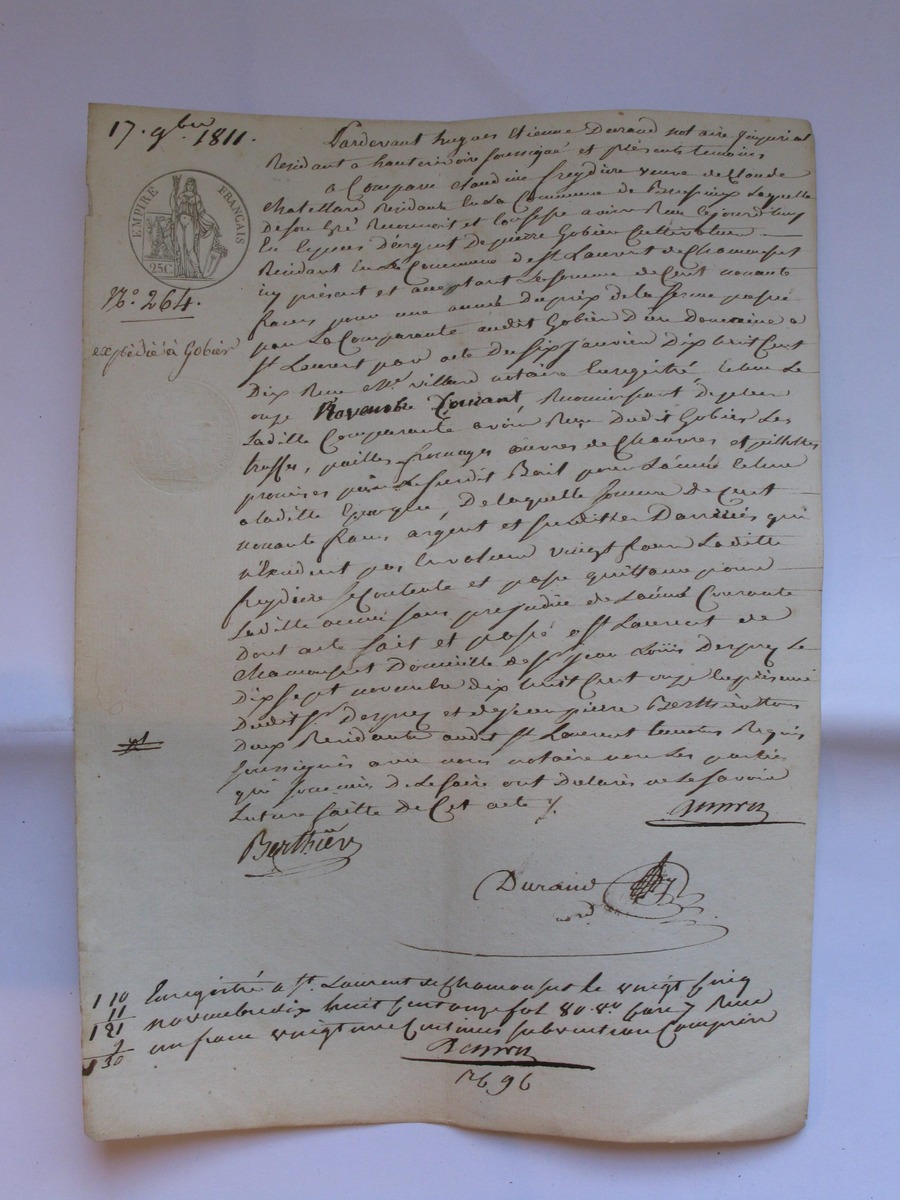 17. 9bre 1811.
EMPIRE FRANÇAIS
25C
No. 264.
expédié à Gobier
Pardevant hugues Etienne Durand notaire jmperial
Residant a hauterivoire soussigné et présents temoins
a Comparu Claudine freydière veuve de Claude
chatellard Residante en la Commune de Brussieux Laquelle
De son gré Reconnoit et Confesse avoir Reçu Cejourd'huy
En Especes D'argent De pierre Gobier Cultivateur
Residant En la Commune de St Laurent de Chamousset
icy présent et acceptant La somme de Cent nonante
francs pour une année du prix de la ferme passée
par La Comparante audit Gobier D'un Domaine a
St Laurent par acte Du six Janvier Dix huit Cent
Dix Reçu Me villard notaire Enregistré le
onze Novembre Courant Reconnoissant De plus
Ladite Comparante avoir Reçu Dudit Gobier Les
truffes, pailles fromages œuvres de Chanvres et
promises par Le susdit Bail pour L'année
a ladite Epoque, De laquelle somme de Cent
nonante francs argent et susdittes Darrées qui
n'Excedent pas En valeur vingt francs Laditte
freydière se Contente et passe quittance pour
Laditte année sans prejudice de L'année Courante
Dont acte fait et passé a St Laurent de
Chamousset Domicille de Sr jean Loüis Desprez Le
Dix Sept novembre dix huit Cent onze En présence
Dudit Sr Desprez et de Jean pierre Berthier tous
Deux Residants audit St Laurent temoins Requis
soussignés avec nous notaire non Les parties
qui sommés De Le faire ont Declarés ne Le Savoir
Lecture faitte De Cet acte
Berthier
Durand
110 Enregistré a St. Laurent de Chamousset le vingt Cinq
11 novembre dix huit Cent onze fol 80. Case 7 Reçu
121 un franc vingt une Centimes subvention Comprise
9
130
2696